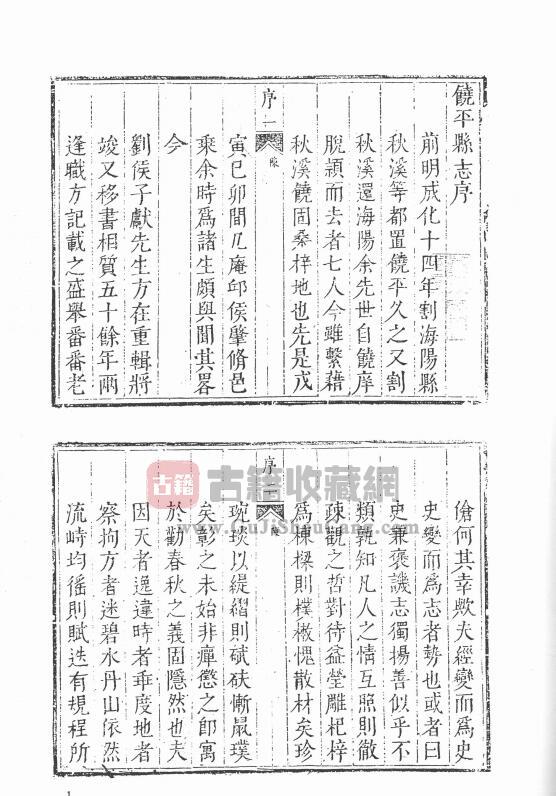 饒平縣志序
前明成化十四年割海陽縣
秋溪等都置饒平久之又割
秋溪還海陽余先世自饒庠
脫穎而去者七人今雖繫籍
秋溪饒固桑梓地也先是戊
序一
陳
寅己卯間几庵邱侯肇脩邑
乘余時爲諸生頗與聞其畧
今
劉侯子獻先生方在重輯將
竣又移書相質五十餘年兩
逢職方記載之盛舉番番老
傖何其幸歟夫經變而爲史
史變而爲志者勢也或者曰
史兼褒譏志獨揚善似乎不
類孰知凡人之情互照則徹
疎觀之哲對待益瑩雕杞梓
爲棟樑則樸樕愧散材矣珍
序
陳
琬琰以緹縎則碔砆慚晁璞
矣彰之未始非癉懲之卽寓
於勸春秋之義固隱然也夫
因天者逸違時者乖度地者
察拘方者迷碧水丹山依然
流峙均徭則賦迭有規程所
古籍
古籍收藏網
www.GuJiShouCang.com
1